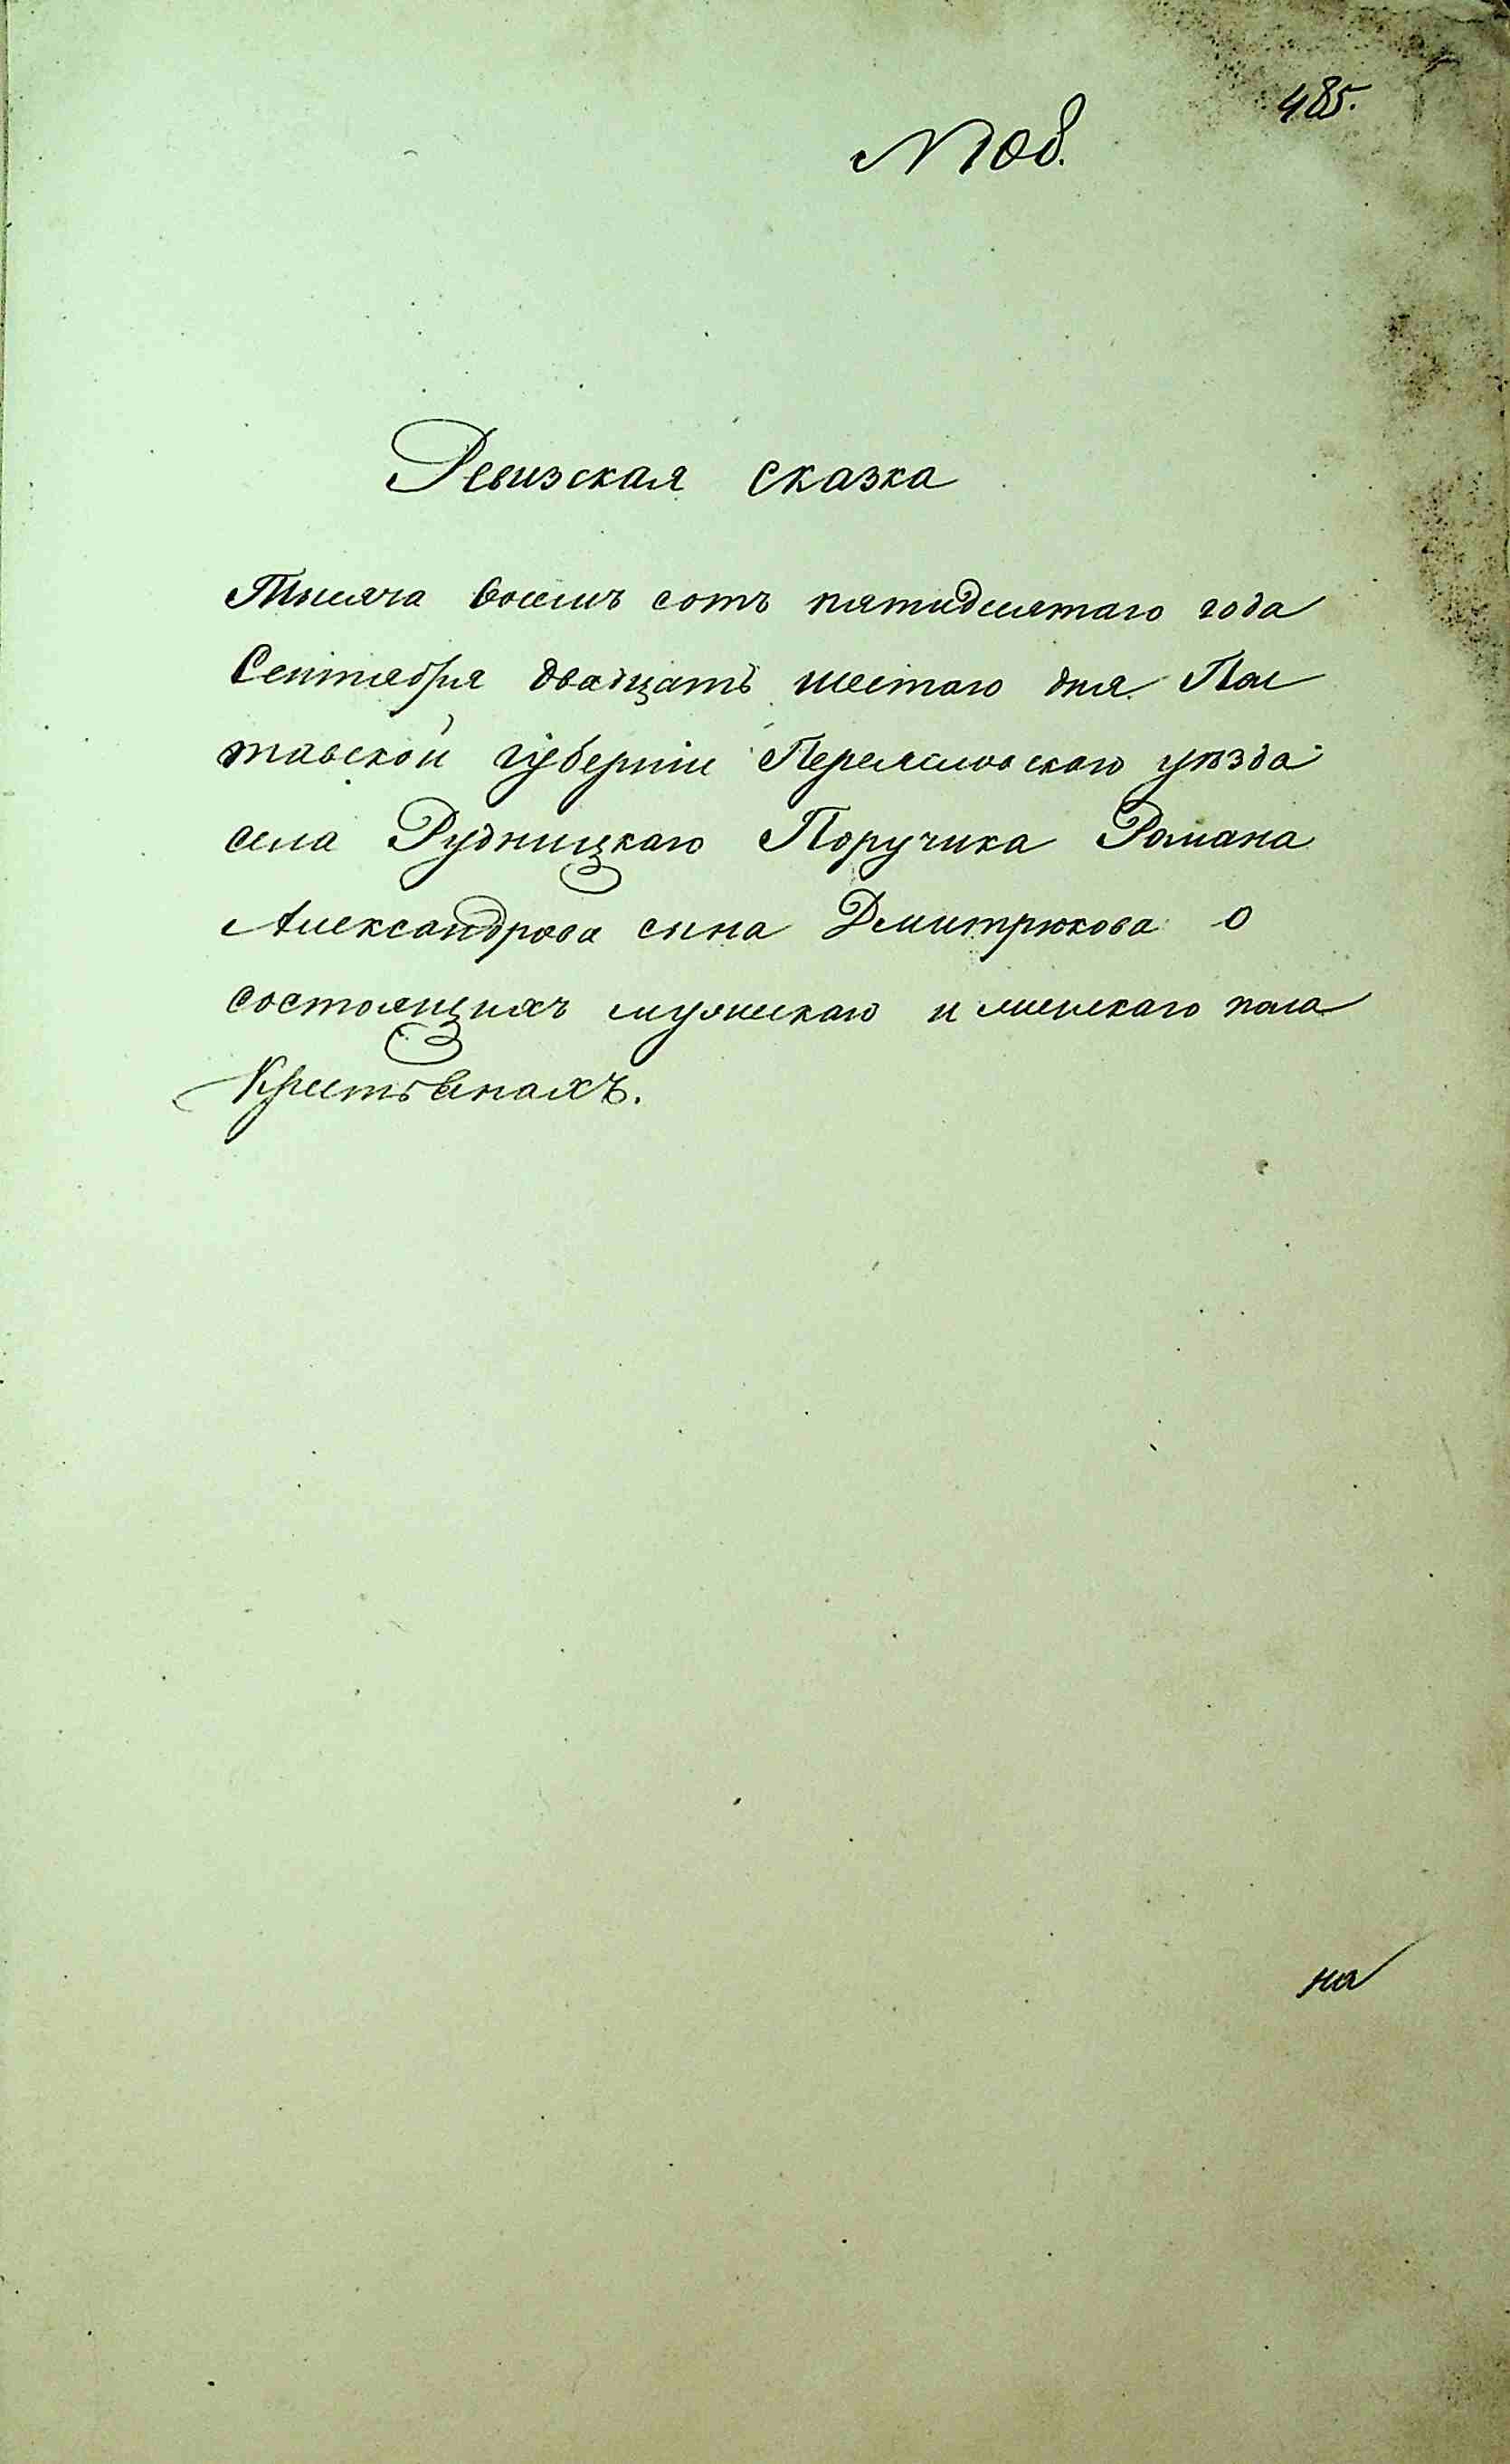 485.
№ 108.
Ревизская сказка
Тысяча восемь сотъ пятидесятаго года
Сентября двадцать шестаго дня Пол
тавской губернiи Переяславскаго уѣзда
села Рудницкаго Поручика Романа
Александрова сына Дмитрюкова о
состоящихъ мужескаго и женскаго пола
Крестьянахъ.
на